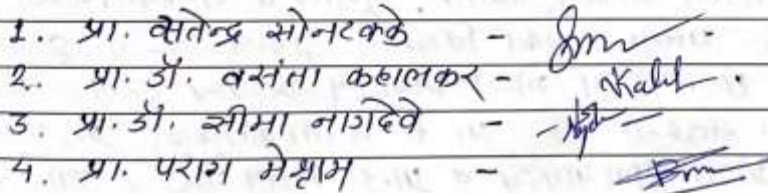 1. प्रा. सतेन्द्र सोनटक्के -
2. प्रा. डॉ. वसंता कहालकर -
3. प्रा. डॉ. सीमा नागदेवे -
4. प्रा. पराग मेश्राम -